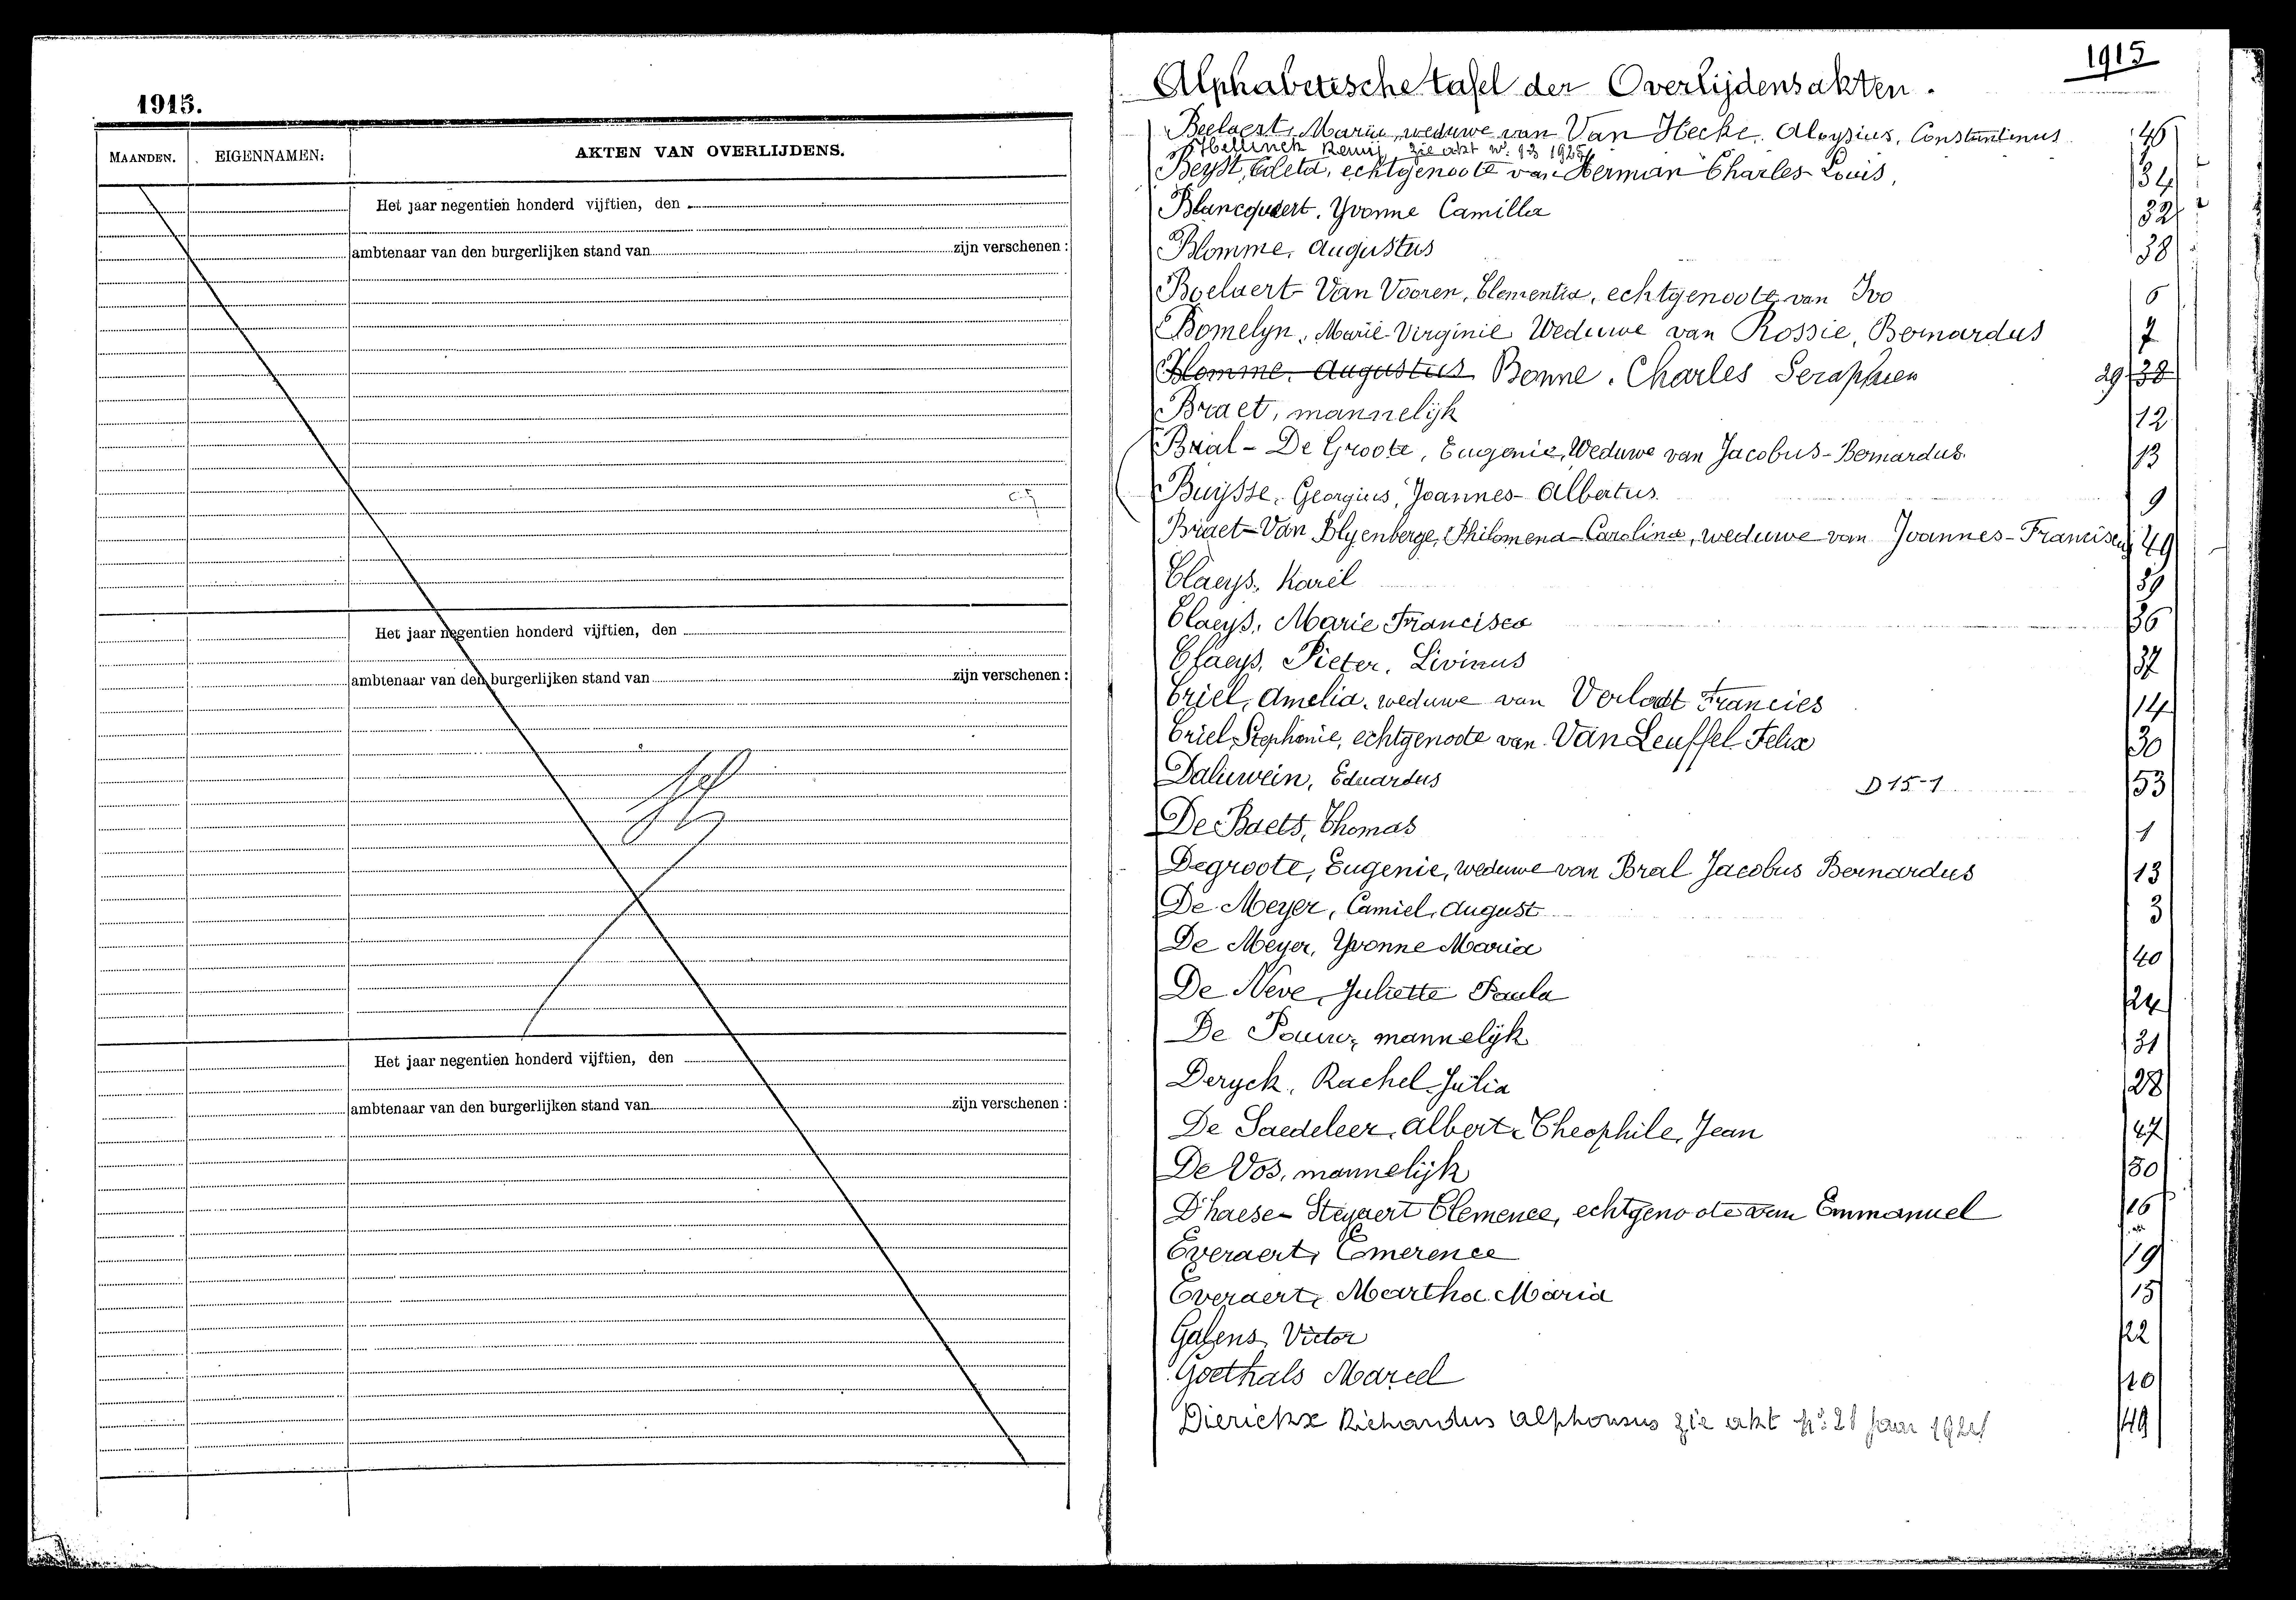 1915.
MAANDEN. EIGENNAMEN: AKTEN VAN OVERLIJDENS.
Het jaar negentien honderd vijftien, den
ambtenaar van den burgerlijken stand van zijn verschenen :
Het jaar negentien honderd vijftien, den
ambtenaar van den burgerlijken stand van zijn verschenen :
Het jaar negentien honderd vijftien, den
ambtenaar van den burgerlijken stand van zijn verschenen :
1915
Alphabetische tafel der Overlijdensakten.
Beelaert, Marie, weduwe van Van Hecke, Aloysius, Constantinus 46
Hellinck Remij, zie akt n°: 13 1925
Beyst, Coleta, echtgenoote van Herman Charles Louis, 34
Blancquaert, Yvonne Camilla 32
Blomme, Augustus 38
Boelaert-Van Vooren, Clementia, echtgenoote van Ivo 6
Bomelyn, Marie-Virginie Weduwe van Rossie, Bernardus 7
Blomme, Augustus Bonne, Charles Seraphien 29 38
Braet, mannelijk 12
Bral - De Groote, Eugenie, Weduwe van Jacobus-Bernardus. 13
Buijsse, Georgius, Joannes-Albertus 9
Braet-Van Blyenberge, Philomena-Carolina, weduwe van Joannes-Franciscus 49
Claeys, Karel 39
Claeys, Marie Francisca 36
Claeys, Pieter, Livinus 37
Criel, Amelia, weduwe van Verlaet Francies 14
Criel, Stephanie, echtgenoote van Van Leuffel Felix 30
Daluwein, Eduardus D 15-1 53
De Baets, Thomas 1
Degroote, Eugenie, weduwe van Bral Jacobus Bernardus 13
De Meyer, Camiel, August 3
De Meyer, Yvonne Maria 40
De Neve, Juliette Paula 24
De Pauw, mannelijk 31
Deryck, Rachel Julia 28
De Saedeleer, Albert, Theophile, Jean 47
De Vos, mannelijk 50
D'haese - Steyaert Clemence, echtgenoote van Emmanuel 16
Everaert, Emerence 19
Everaert, Martha Maria 15
Galens, Victor 22
Goethals Marcel 10
Dierickx Richardus Alphonsus zie akt n°: 21 jaar 1921 49